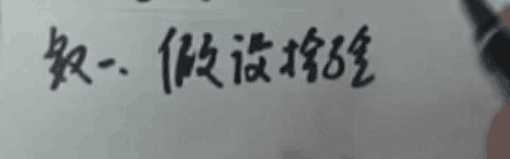 数一. 假设检验